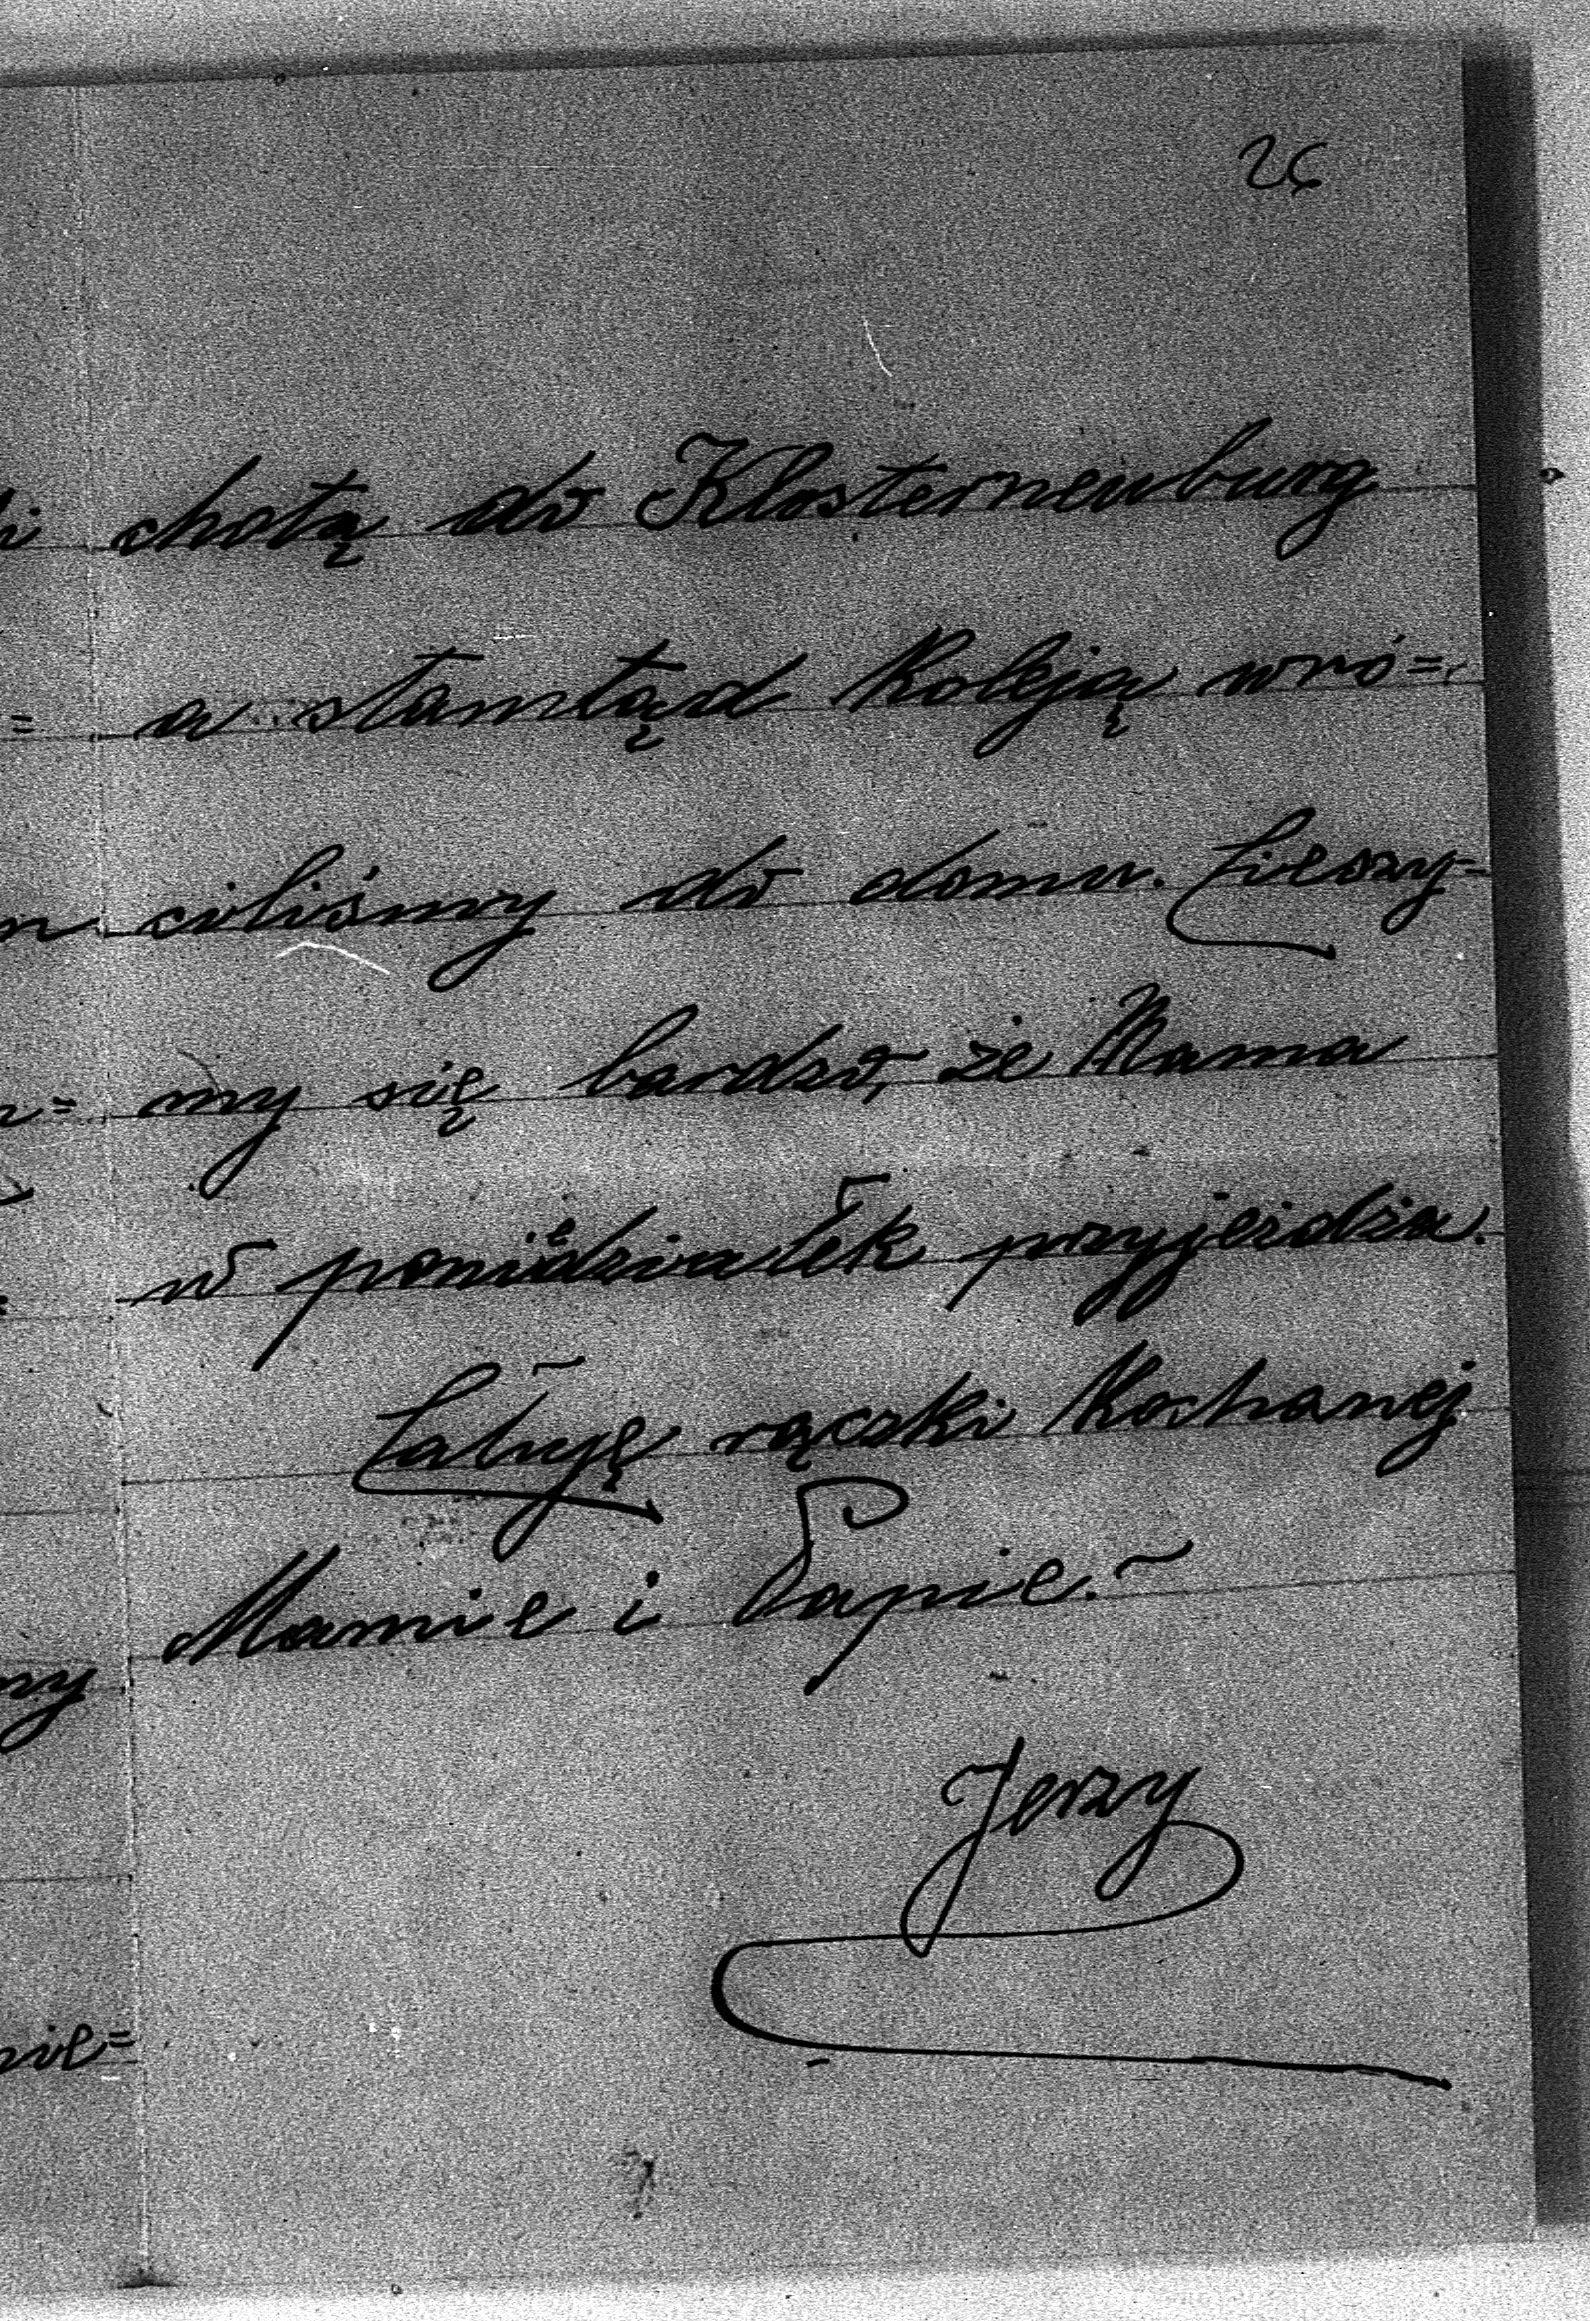 26
chotą do Klosterneuburg
a stamtąd koleją wró=
ciliśmy do domu. Cieszy-
my się bardzo, że Mama
w poniedziałek przyjeżdża.
Całuję rączki Kochanej
Mamie i Papie.
Jerzy